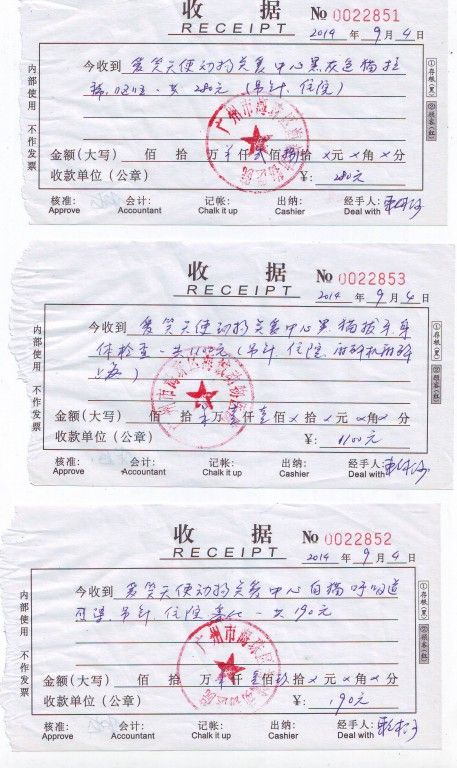 收 据
RECEIPT
No 0022851
2014 年 9 月 4 日
今收到 爱笑天使动物关爱中心黑灰色猫拉
稀,呕吐,共 280元(吊针、住院)
金额(大写) 佰 拾 万 仟 贰佰 捌拾 x元 x角 x分
收款单位(公章) ¥: 280元
核准: 会计: 记帐: 出纳: 经手人:
Approve Accountant Chalk it up Cashier Deal with
内部使用 不作发票
①存根(黑) ②顾客(红)
收 据
RECEIPT
No 0022853
2014 年 9 月 4 日
今收到 爱笑天使动物关爱中心黑猫拔牙.身
体检查.一共1100元(吊针 住院
金额(大写) 佰 拾 万 壹仟 壹佰 x拾 x元 x角 x分
收款单位(公章) ¥: 1100元
核准: 会计: 记帐: 出纳: 经手人:
Approve Accountant Chalk it up Cashier Deal with
内部使用 不作发票
①存根(黑) ②顾客(红)
收 据
RECEIPT
No 0022852
2014 年 9 月 4 日
今收到 爱笑天使动物关爱中心白猫呼吸道
吊针 住院 一共190元
广州市海珠区
金额(大写) 佰 拾 万 仟 壹佰 玖拾 x元 x角 x分
收款单位(公章) ¥: 190元
核准: 会计: 记帐: 出纳: 经手人:
Approve Accountant Chalk it up Cashier Deal with
内部使用 不作发票
①存根(黑) ②顾客(红)